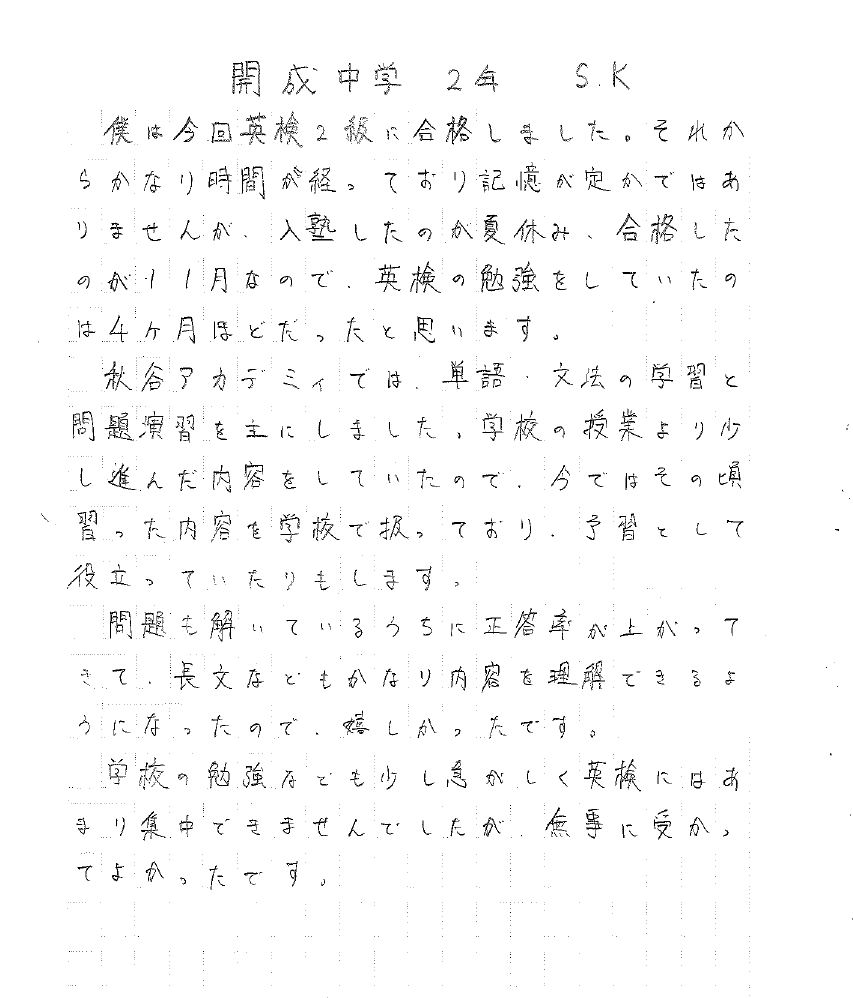 開成中学 2年 S.K
僕は今回英検2級に合格しました。それか
らかなり時間が経っており記憶が定かではあ
りませんが、入塾したのが夏休み、合格した
のが11月なので、英検の勉強をしていたの
は4ヶ月ほどだったと思います。
秋谷アカデミィでは、単語・文法の学習と
問題演習を主にしました。学校の授業より少
し進んだ内容をしていたので、今ではその頃
習った内容を学校で扱っており、予習として
役立っていたりもします。
問題も解いているうちに正答率が上がって
きて、長文などもかなり内容を理解できるよ
うになったので、嬉しかったです。
学校の勉強なども少し急がしく英検にはあ
まり集中できませんでしたが、無事に受かっ
てよかったです。